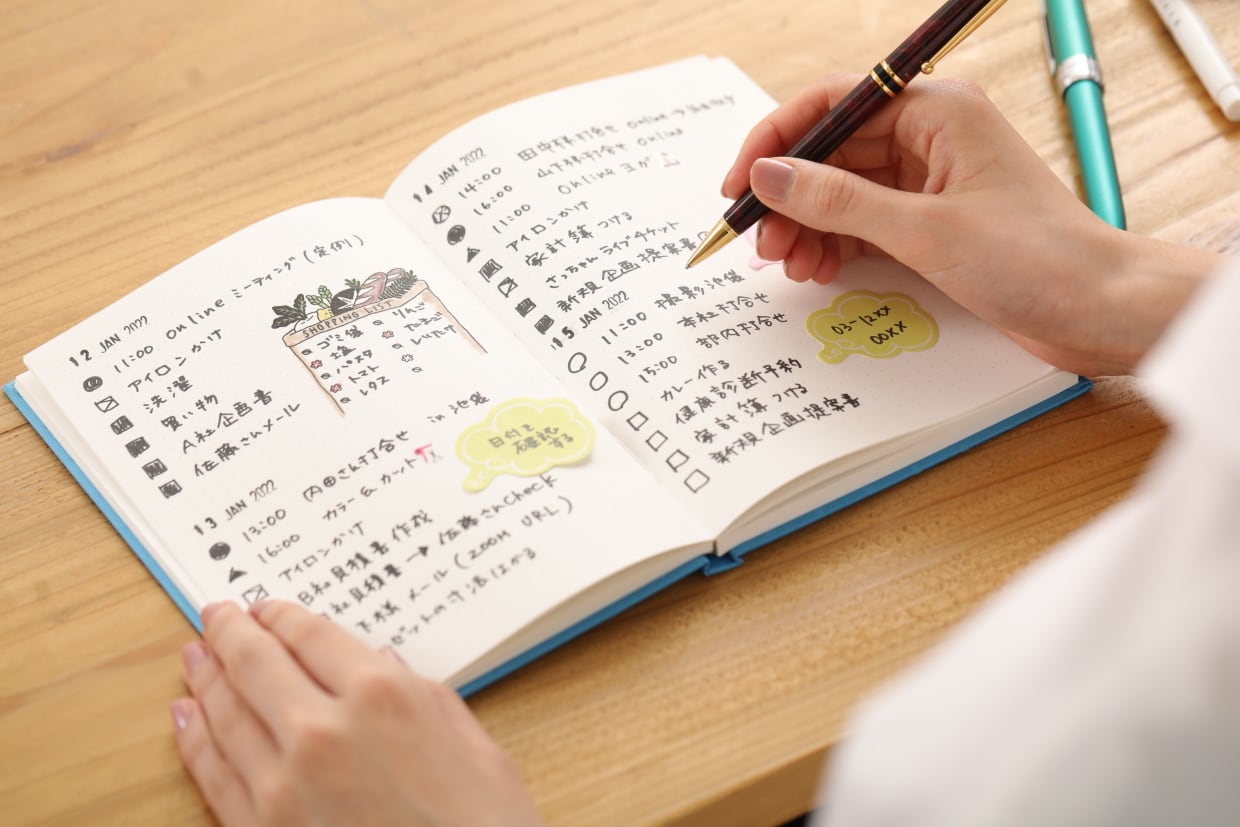 12 JAN 2022
11:00 Online ミーティング (定例)
アイロンかけ
洗濯
買い物
A社企画書
佐藤さんメール
SHOPPING LIST
ゴミ袋
塩
パスタ
トマト
レタス
りんご
たまご
しいたけ
13 JAN 2022
13:00 内田さん打合せ in 池袋
16:00 カラー & カット
アイロンかけ
B社見積書作成
社見積書 → 佐藤さんcheck
下様 メール (ZOOM URL)
ゼットの寸法はかる
日付を
確認
する
14 JAN 2022
14:00 田中様打合せ online
16:00 山下様打合せ online
11:00 Online ヨガ
アイロンかけ
家計簿つける
さっちゃん ライブチケット
新規企画提案書
15 JAN 2022
11:00 撮影池袋
13:00 本社打合せ
15:00 部内打合せ
カレー作る
健康診断予約
家計簿つける
新規企画提案書
03-12XX
00XX